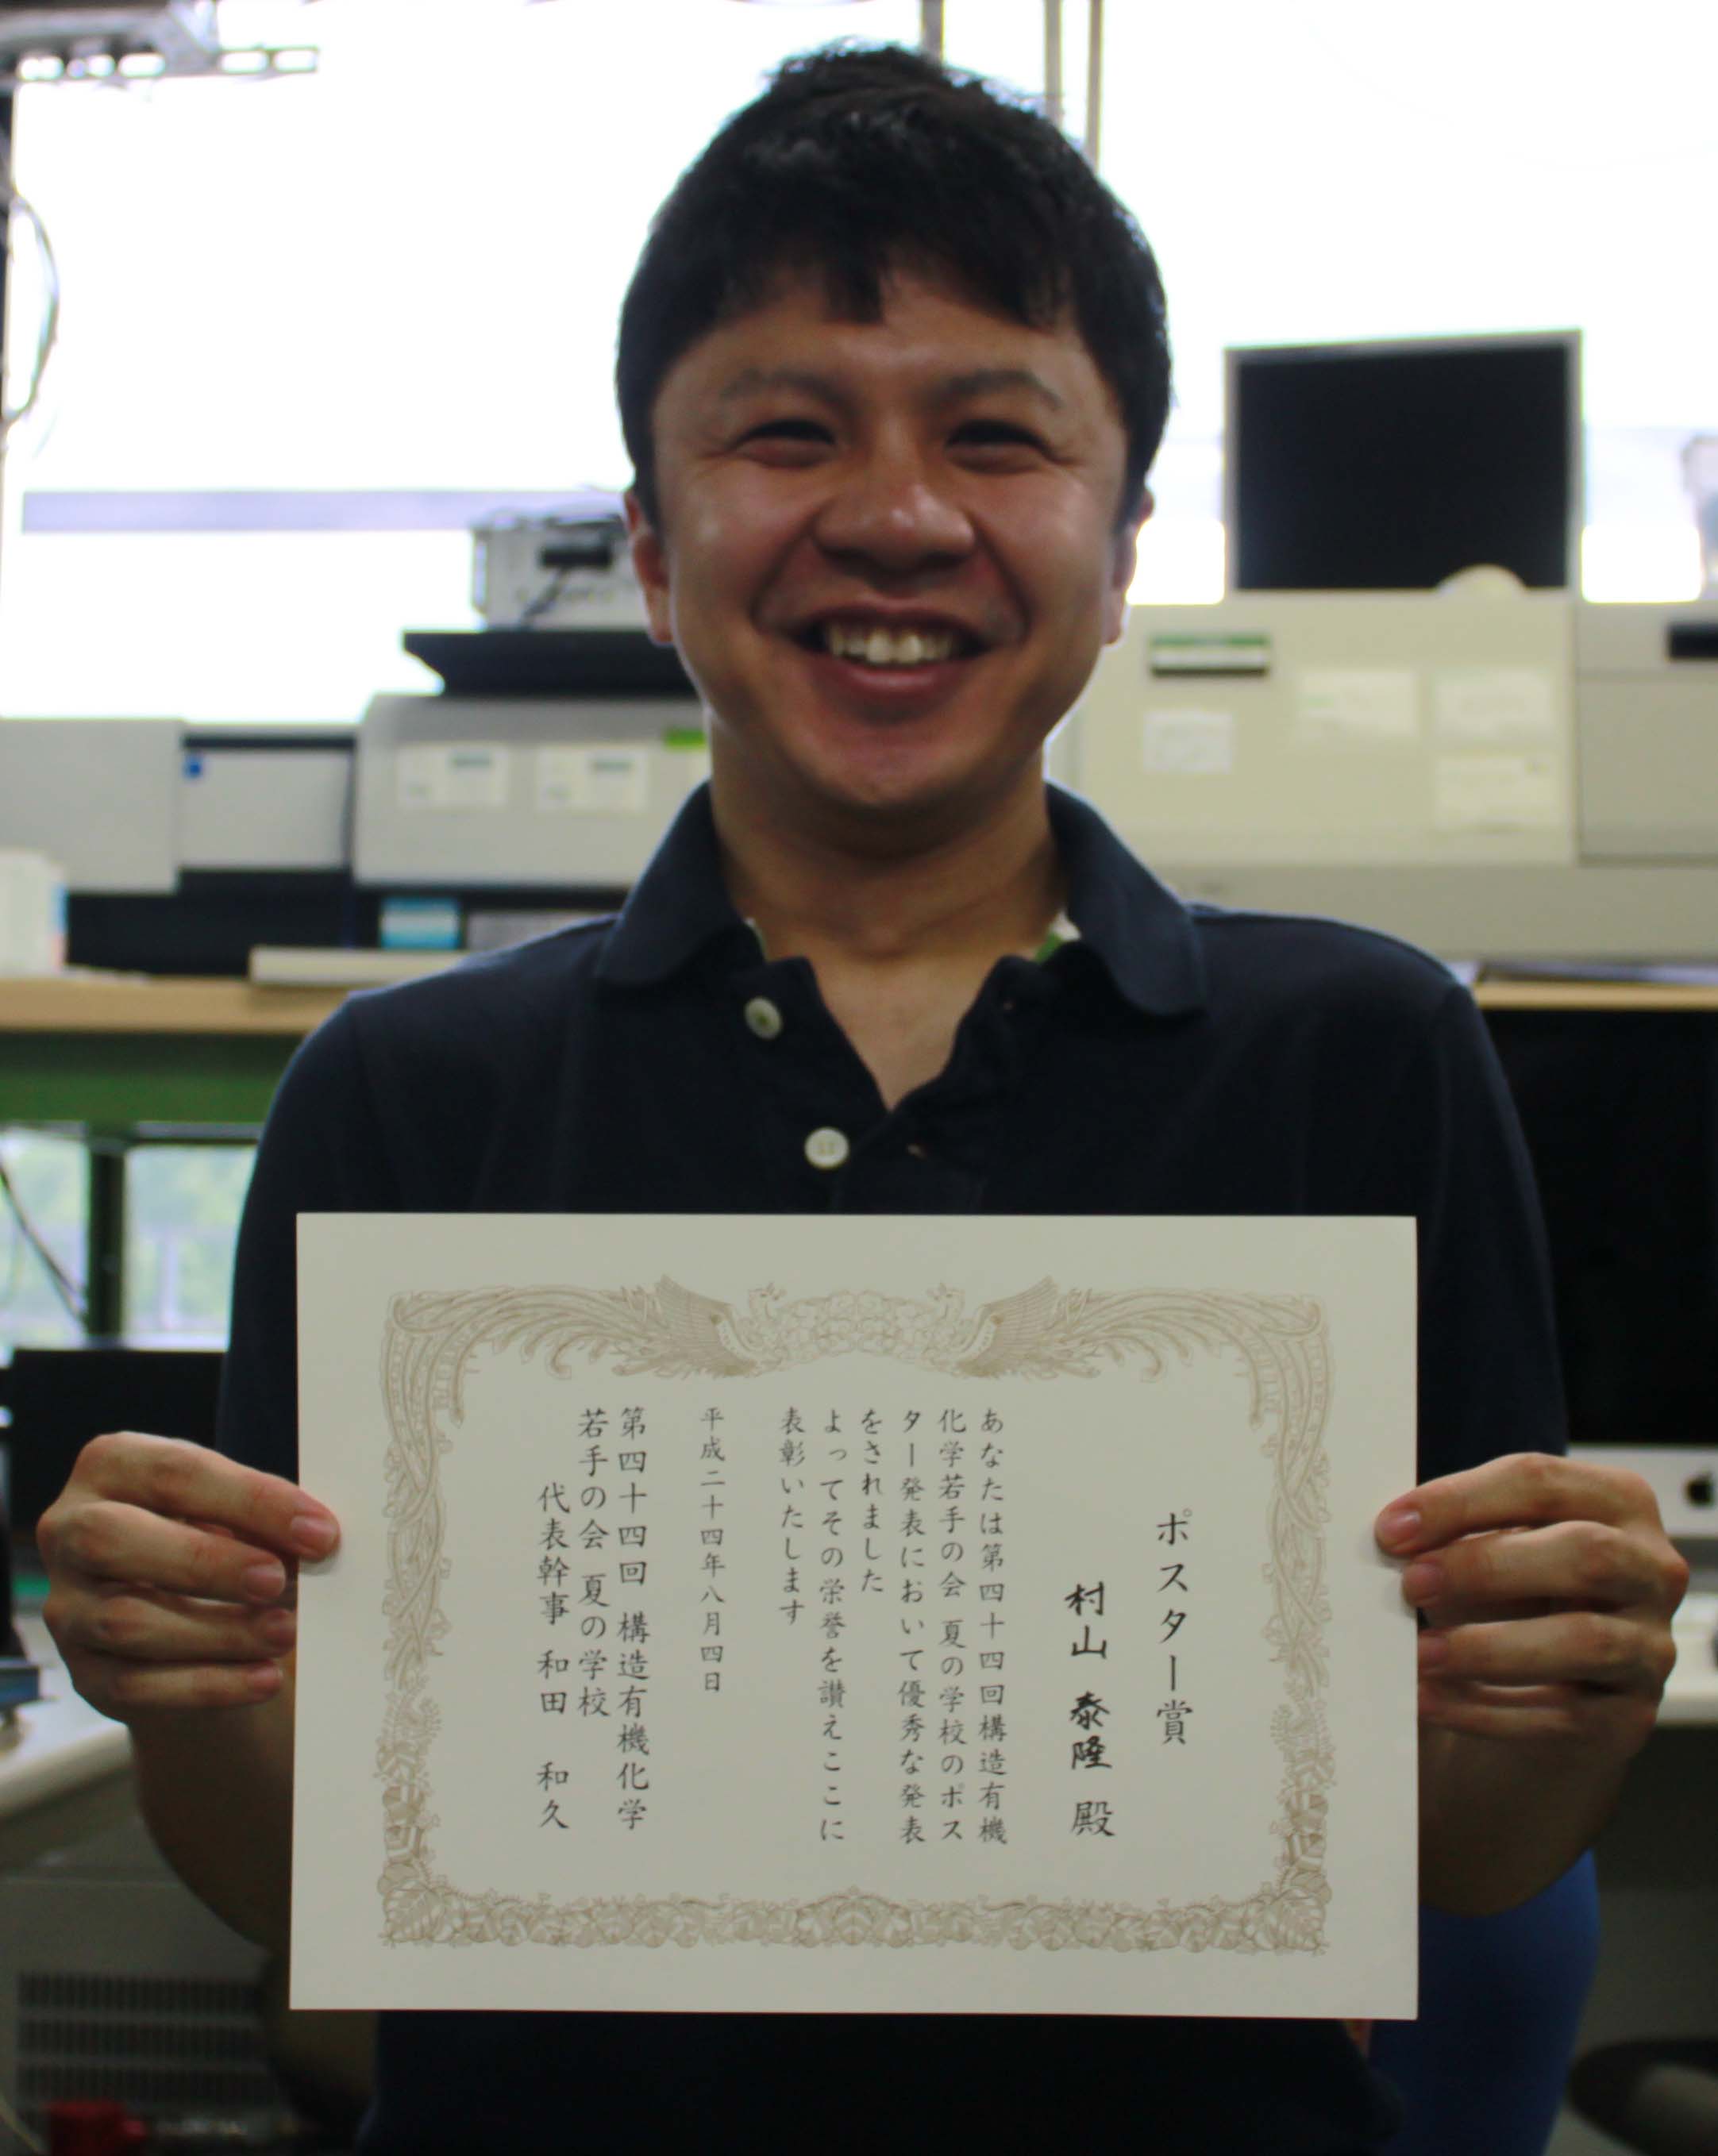 ポスター賞
村山 泰隆 殿
あなたは第四十四回構造有機
化学若手の会 夏の学校のポス
ター発表において優秀な発表
をされました
よってその栄誉を讃えここに
表彰いたします
平成二十四年八月四日
第四十四回 構造有機化学
若手の会 夏の学校
代表幹事 和田 和久